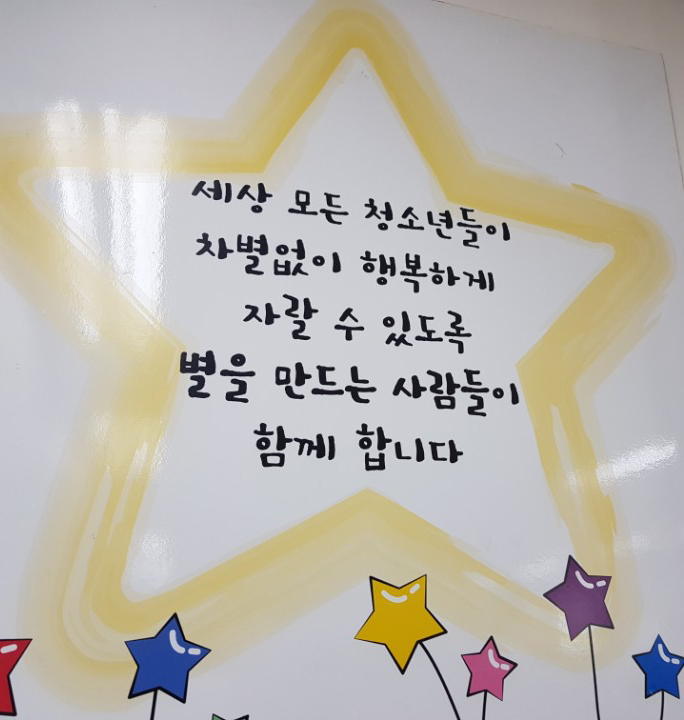 세상 모든 청소년들이
차별없이 행복하게
자랄 수 있도록
별을 만드는 사람들이
함께 합니다